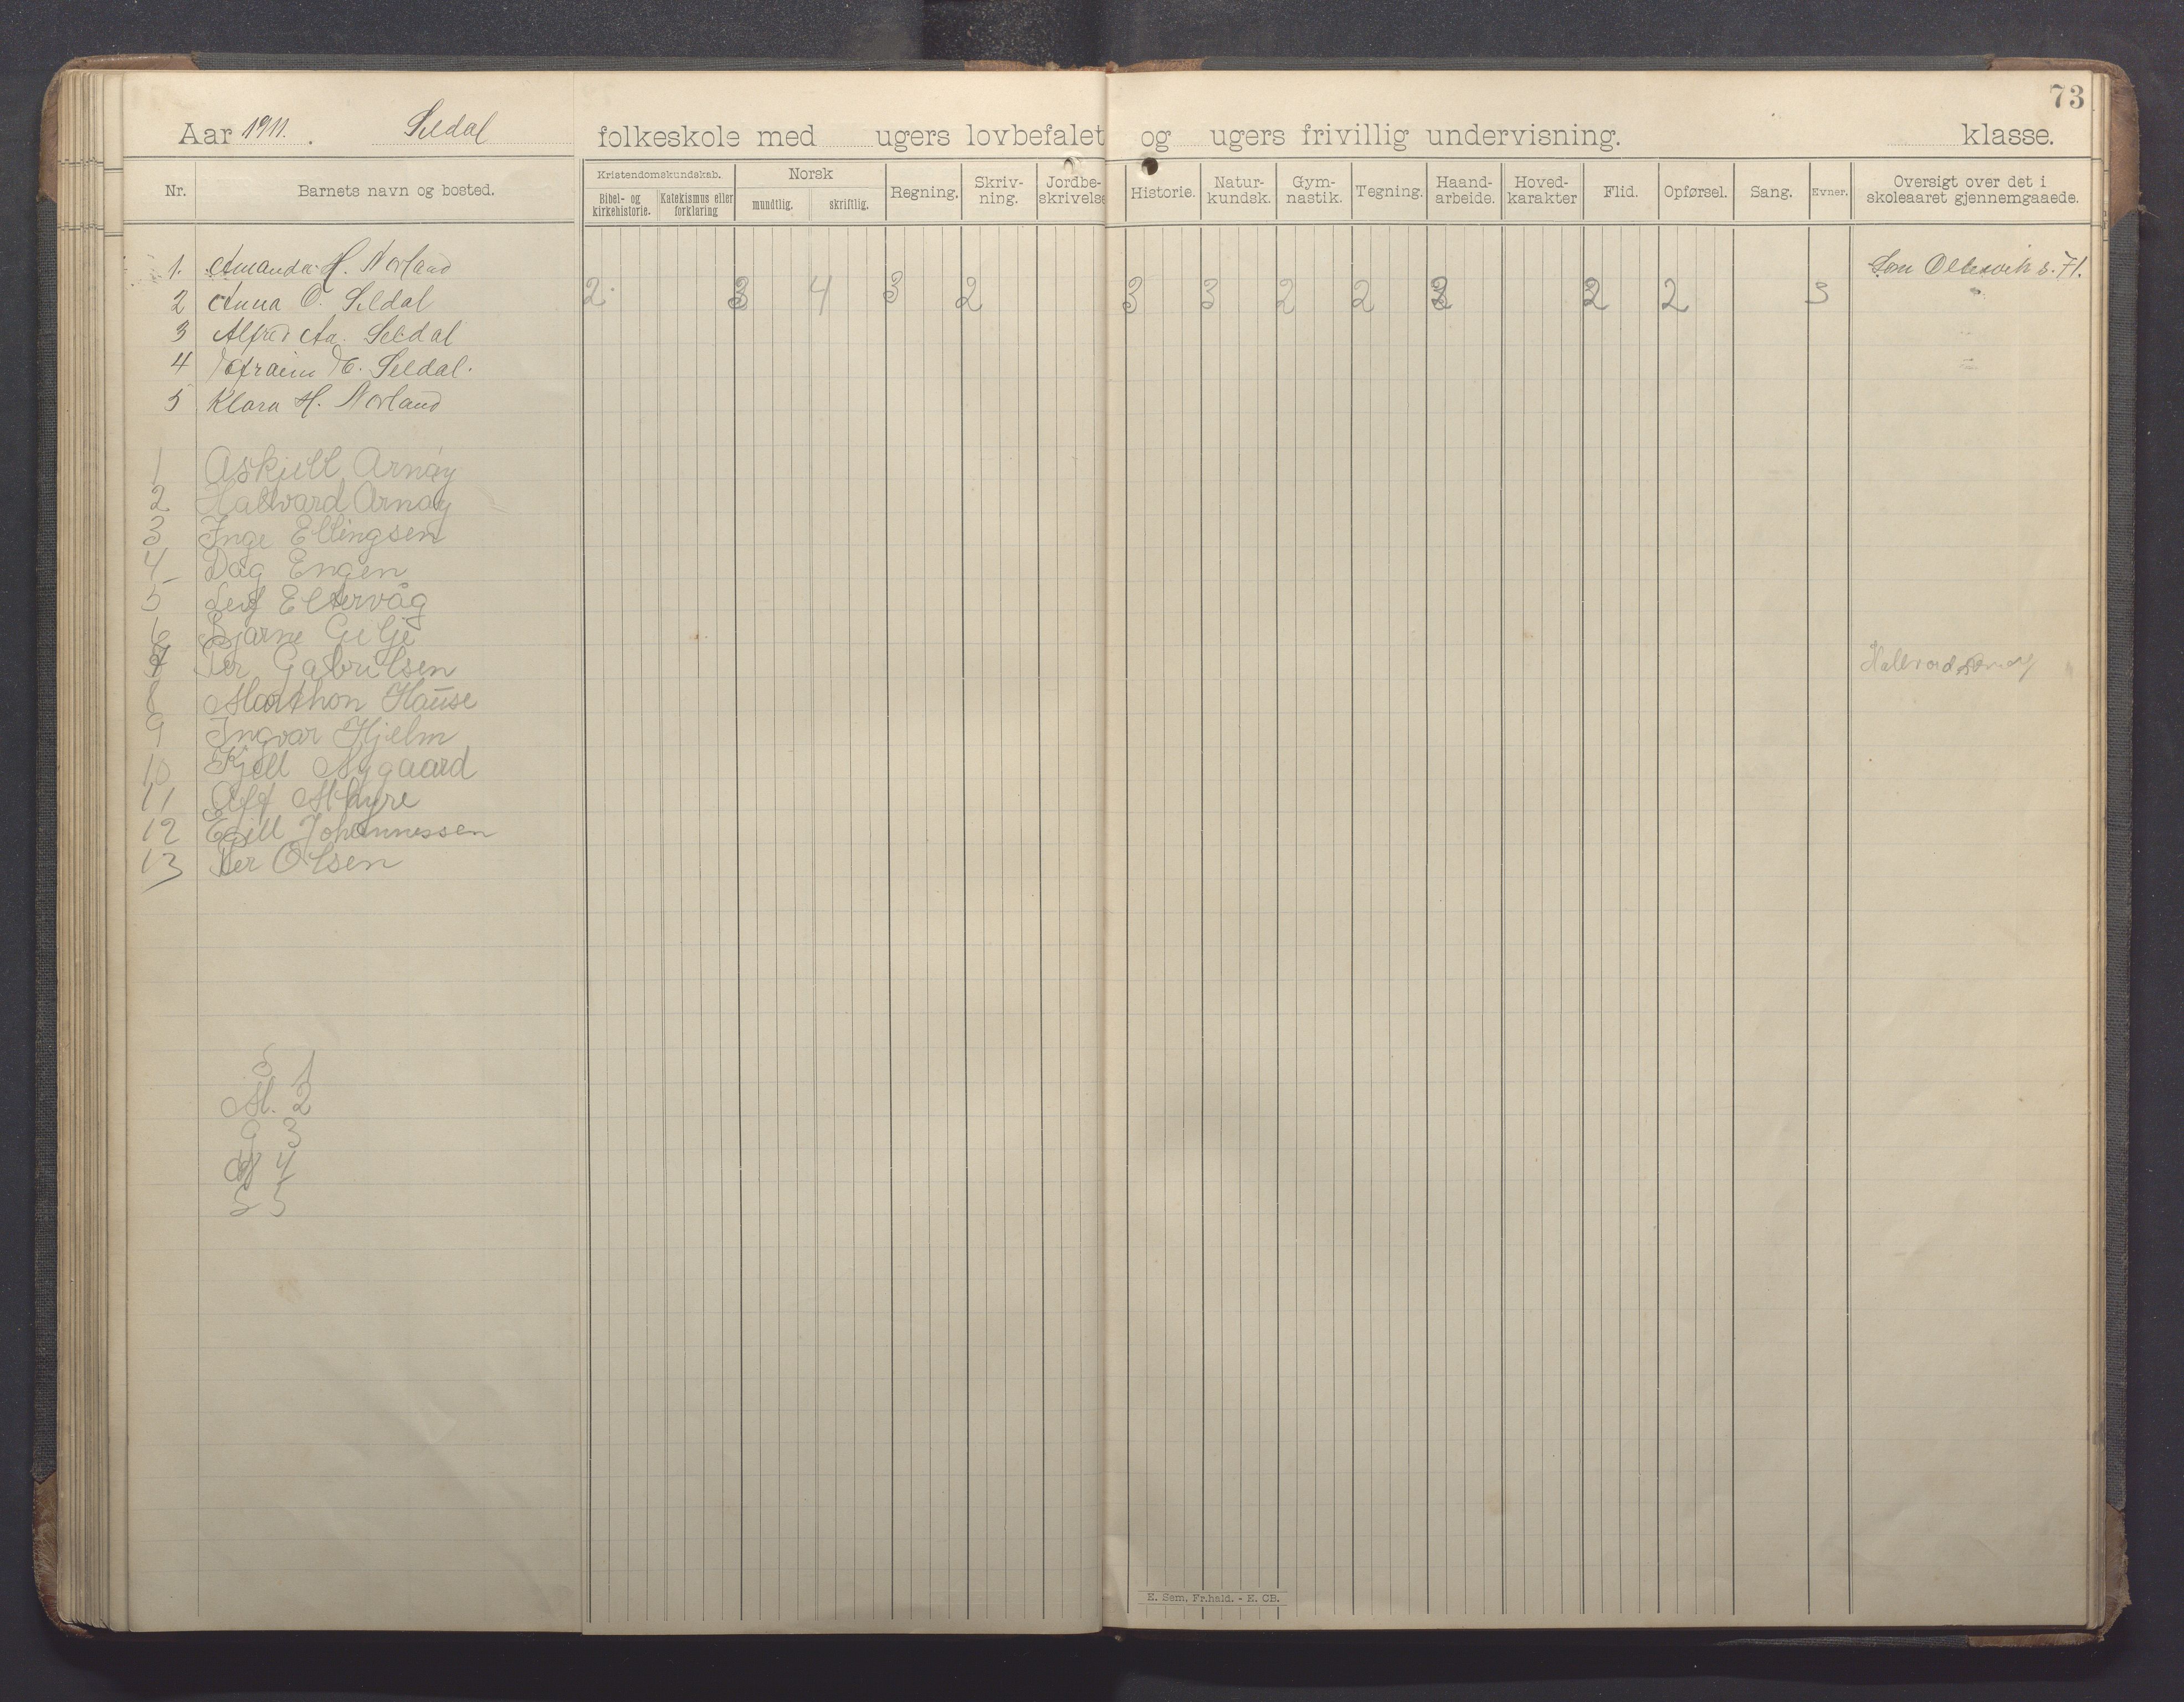 73
Aar 1911. Seldal folkeskole med ugers lovbefalet og ugers frivillig undervisning. klasse.
Nr. Barnets navn og bosted. Kristendomskundskab. Bibel- og kirkehistorie. Katekismus eller forklaring Norsk mundtlig. skriftlig. Regning. Skriv-ning. Jordbe-skrivelse Historie. Natur-kundsk. Gym-nastik. Tegning. Haand-arbeide. Hoved-karakter Flid. Opførsel. Sang. Evner. Oversigt over det i skoleaaret gjennemgaaede.
1. Amanda H. Norland Som s. 71.
2 Anna O. Seldal 2 3 4 3 2 3 3 2 2 2 2 3
3 Alfred Aa. Seldal
4 Efraim E. Seldal.
5 Klara H. Norland
1 Askjell Arnøy
2 Halvard Arnøy
3 Inge Ellingsen
4 Dag Engen
5 Leif Eltervåg
6 Bjarne Gilje
7 Per Gabrilsen Hallvard Arnøy
8 Marthon Hause
9 Ingvar Hjelm
10 Kjell Nygaard
11 Alf Myhre
12 Egill Johannessen
13 Per Olsen
1
M. 2
9 3
4
S 5
E. Sem, Fr.hald. - E. CB.